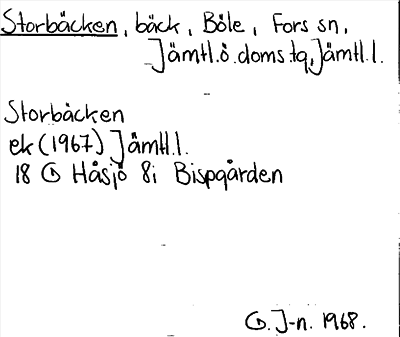 Storbäcken, bäck, Böle, Fors sn,
Jämtl.ö.doms.tg, Jämtl.l.
Storbäcken
ek (1967) Jämtl.l.
18 G Håsjö 8i Bispgården
G. J-n. 1968.